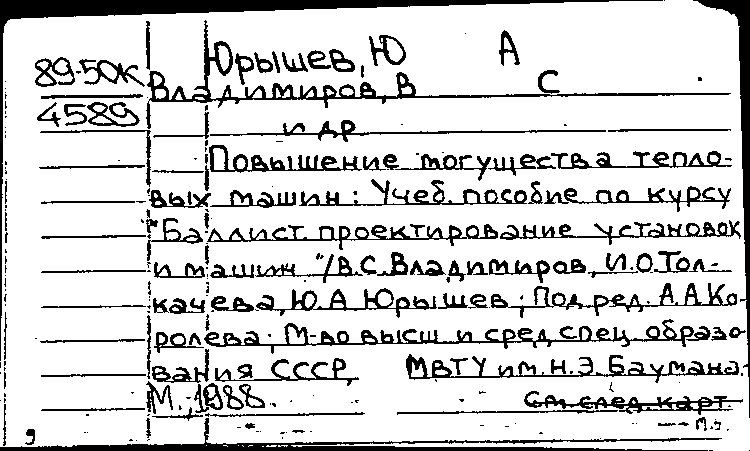 89-50К
4589
Юрышев, Ю А
Владимиров, В С
и др
Повышение могущества тепло-
вых машин: Учеб. пособие по курсу
"Баллист. проектирование установок
и машин"/В.С.Владимиров, И.О.Тол-
качева, Ю.А Юрышев; Под ред. А.А Ко-
ролева; М-во высш и сред спец. образо-
вания СССР, МВТУ им. Н.Э. Баумана.-
М., 1988.
См. след. карт.
9